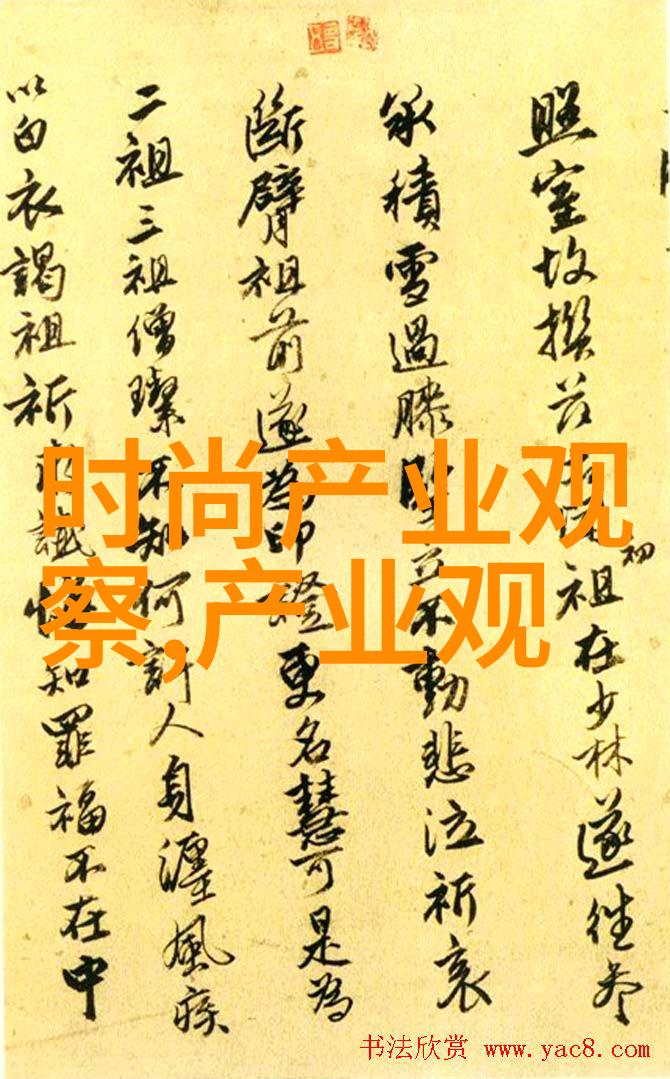 照室故撰 祖在少林遂往参
初
承积雪過膝 立不動悲泣祈哀
斷臂祖前遂為印證更名慧可是為
二祖三祖僧璨不知何許人身纏風疾
以白衣謁祖祈 懺悔知罪福不在中
时尚产业观
察,产业观
书法欣赏 www.yac8.com